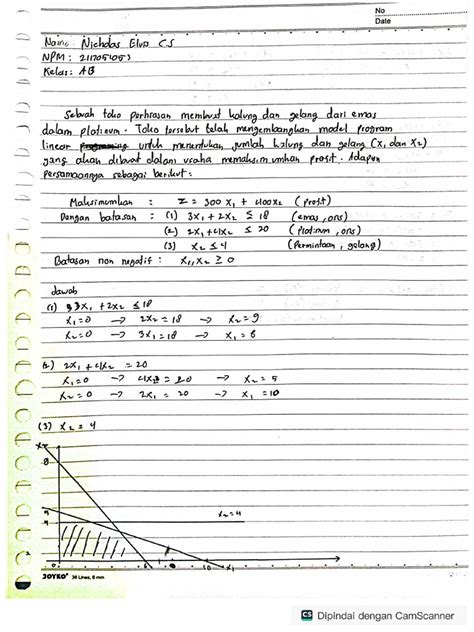 No
Date
Nama : Nicholas Elvo C.S
NPM : 2117051053
Kelas : AB
Sebuah toko perhiasan membuat kalung dan gelang dari emas
dalam platinum. Toko tersebut telah mengembangkan model program
linear untuk menentukan jumlah kalung dan gelang (x₁ dan x₂)
yang akan dibuat dalam usaha memaksimumkan profit. Adapun
persamaannya sebagai berikut :
Maksimumkan : Z = 300 x₁ + 400x₂ (profit)
Dengan batasan : (1) 3x₁ + 2x₂ ≤ 18 (emas, ons)
(2) 2x₁ + 4x₂ ≤ 20 (Platinum, ons)
(3) x₂ ≤ 4 (Permintaan, gelang)
Batasan non negatif : x₁, x₂ ≥ 0
Jawab
(1) 3x₁ + 2x₂ ≤ 18
x₁ = 0 → 2x₂ = 18 → x₂ = 9
x₂ = 0 → 3x₁ = 18 → x₁ = 6
2) 2x₁ + 4x₂ = 20
x₁ = 0 → 4x₂ = 20 → x₂ = 5
x₂ = 0 → 2x₁ = 20 → x₁ = 10
(3) x₂ = 4
x₂
x₂ = 4
0
10
x₁
JOYKO 36 Lines, 8 mm
CS Dipindai dengan CamScanner